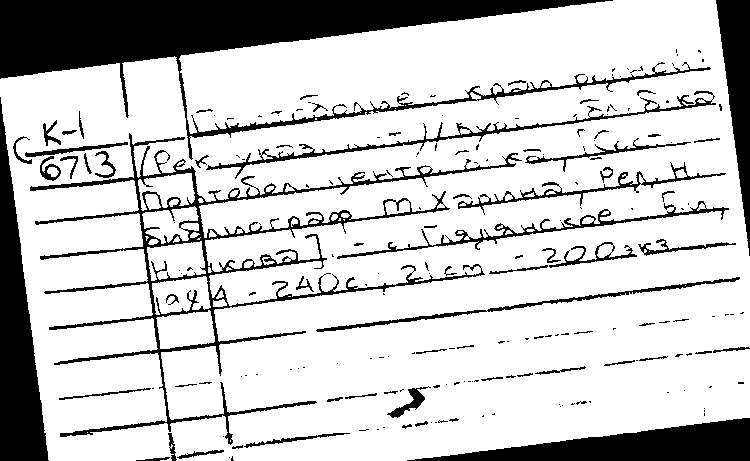 К-1
6713
Притоболье - край родной:
(Рек. указ. лит.) // Кург. обл. б-ка,
Притобол. центр. б-ка; [Сост.
библиограф М. Харина; Ред. Н.
]. - с. Глядянское: Б.и.,
- 240с.; 21cm. - 200экз